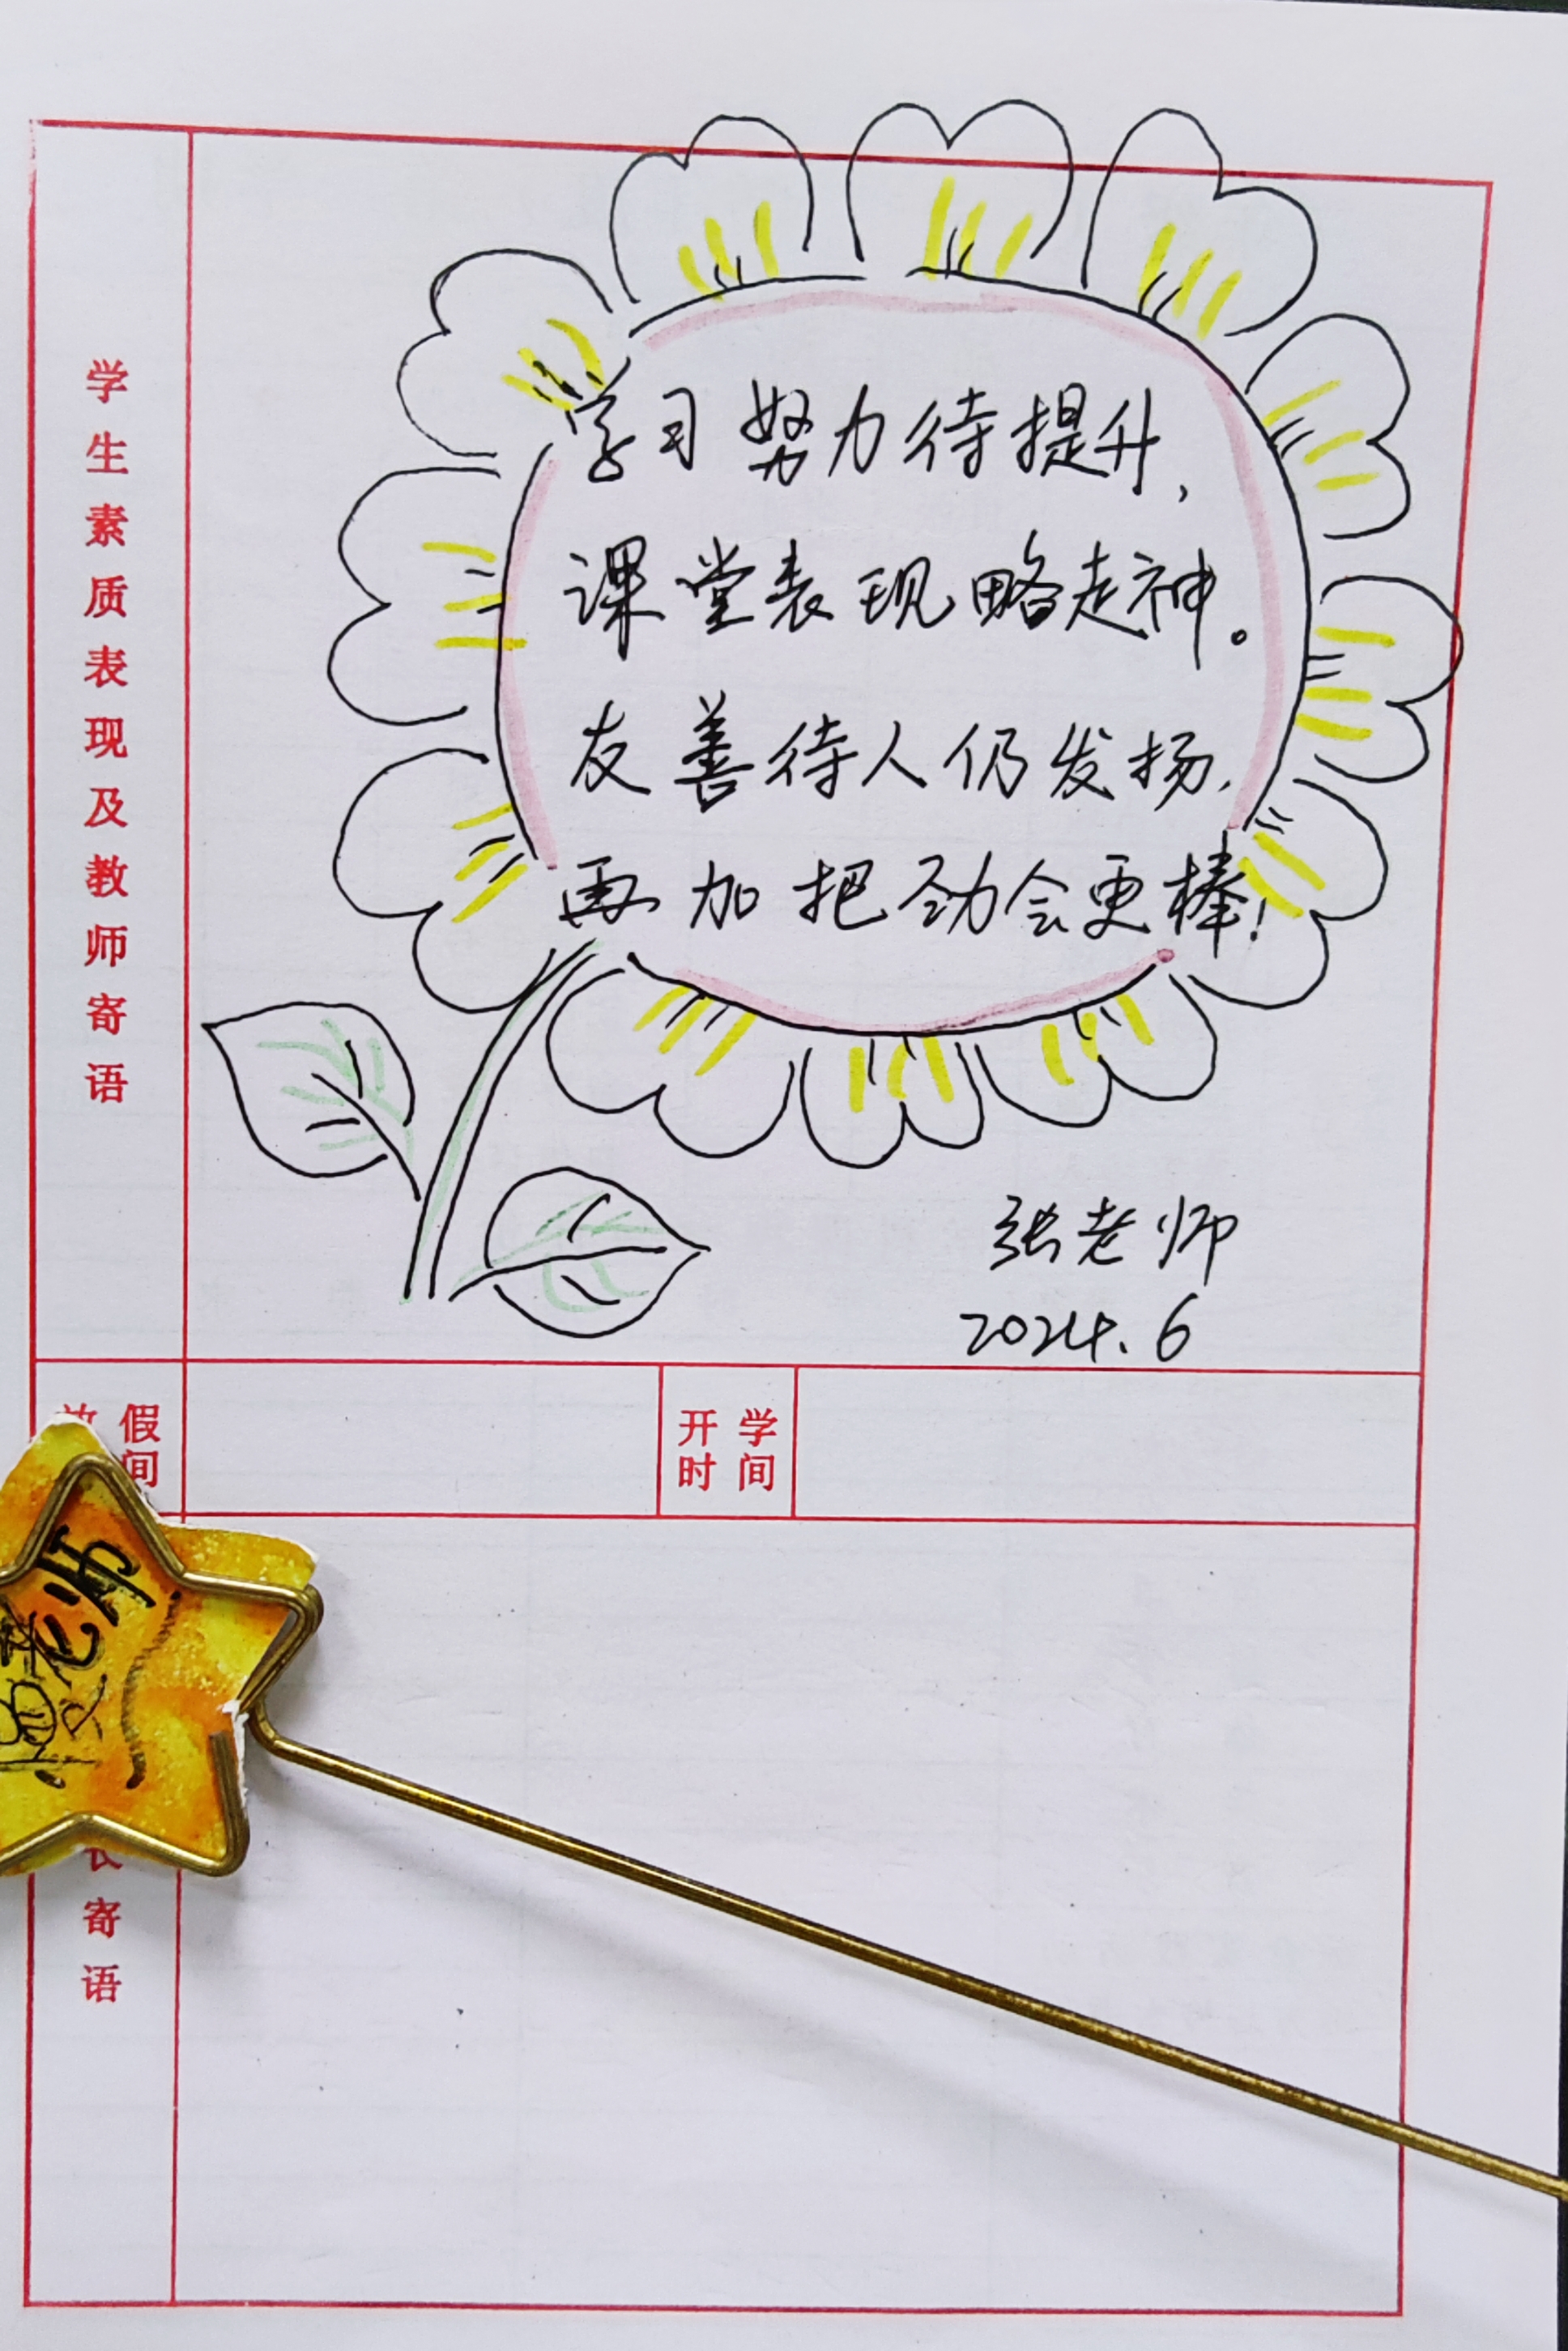 学生素质表现及教师寄语
学习努力待提升，
课堂表现略走神。
友善待人仍发扬，
再加把劲会更棒！
张老师
2024.6
假
间
开学
时间
老师
寄语